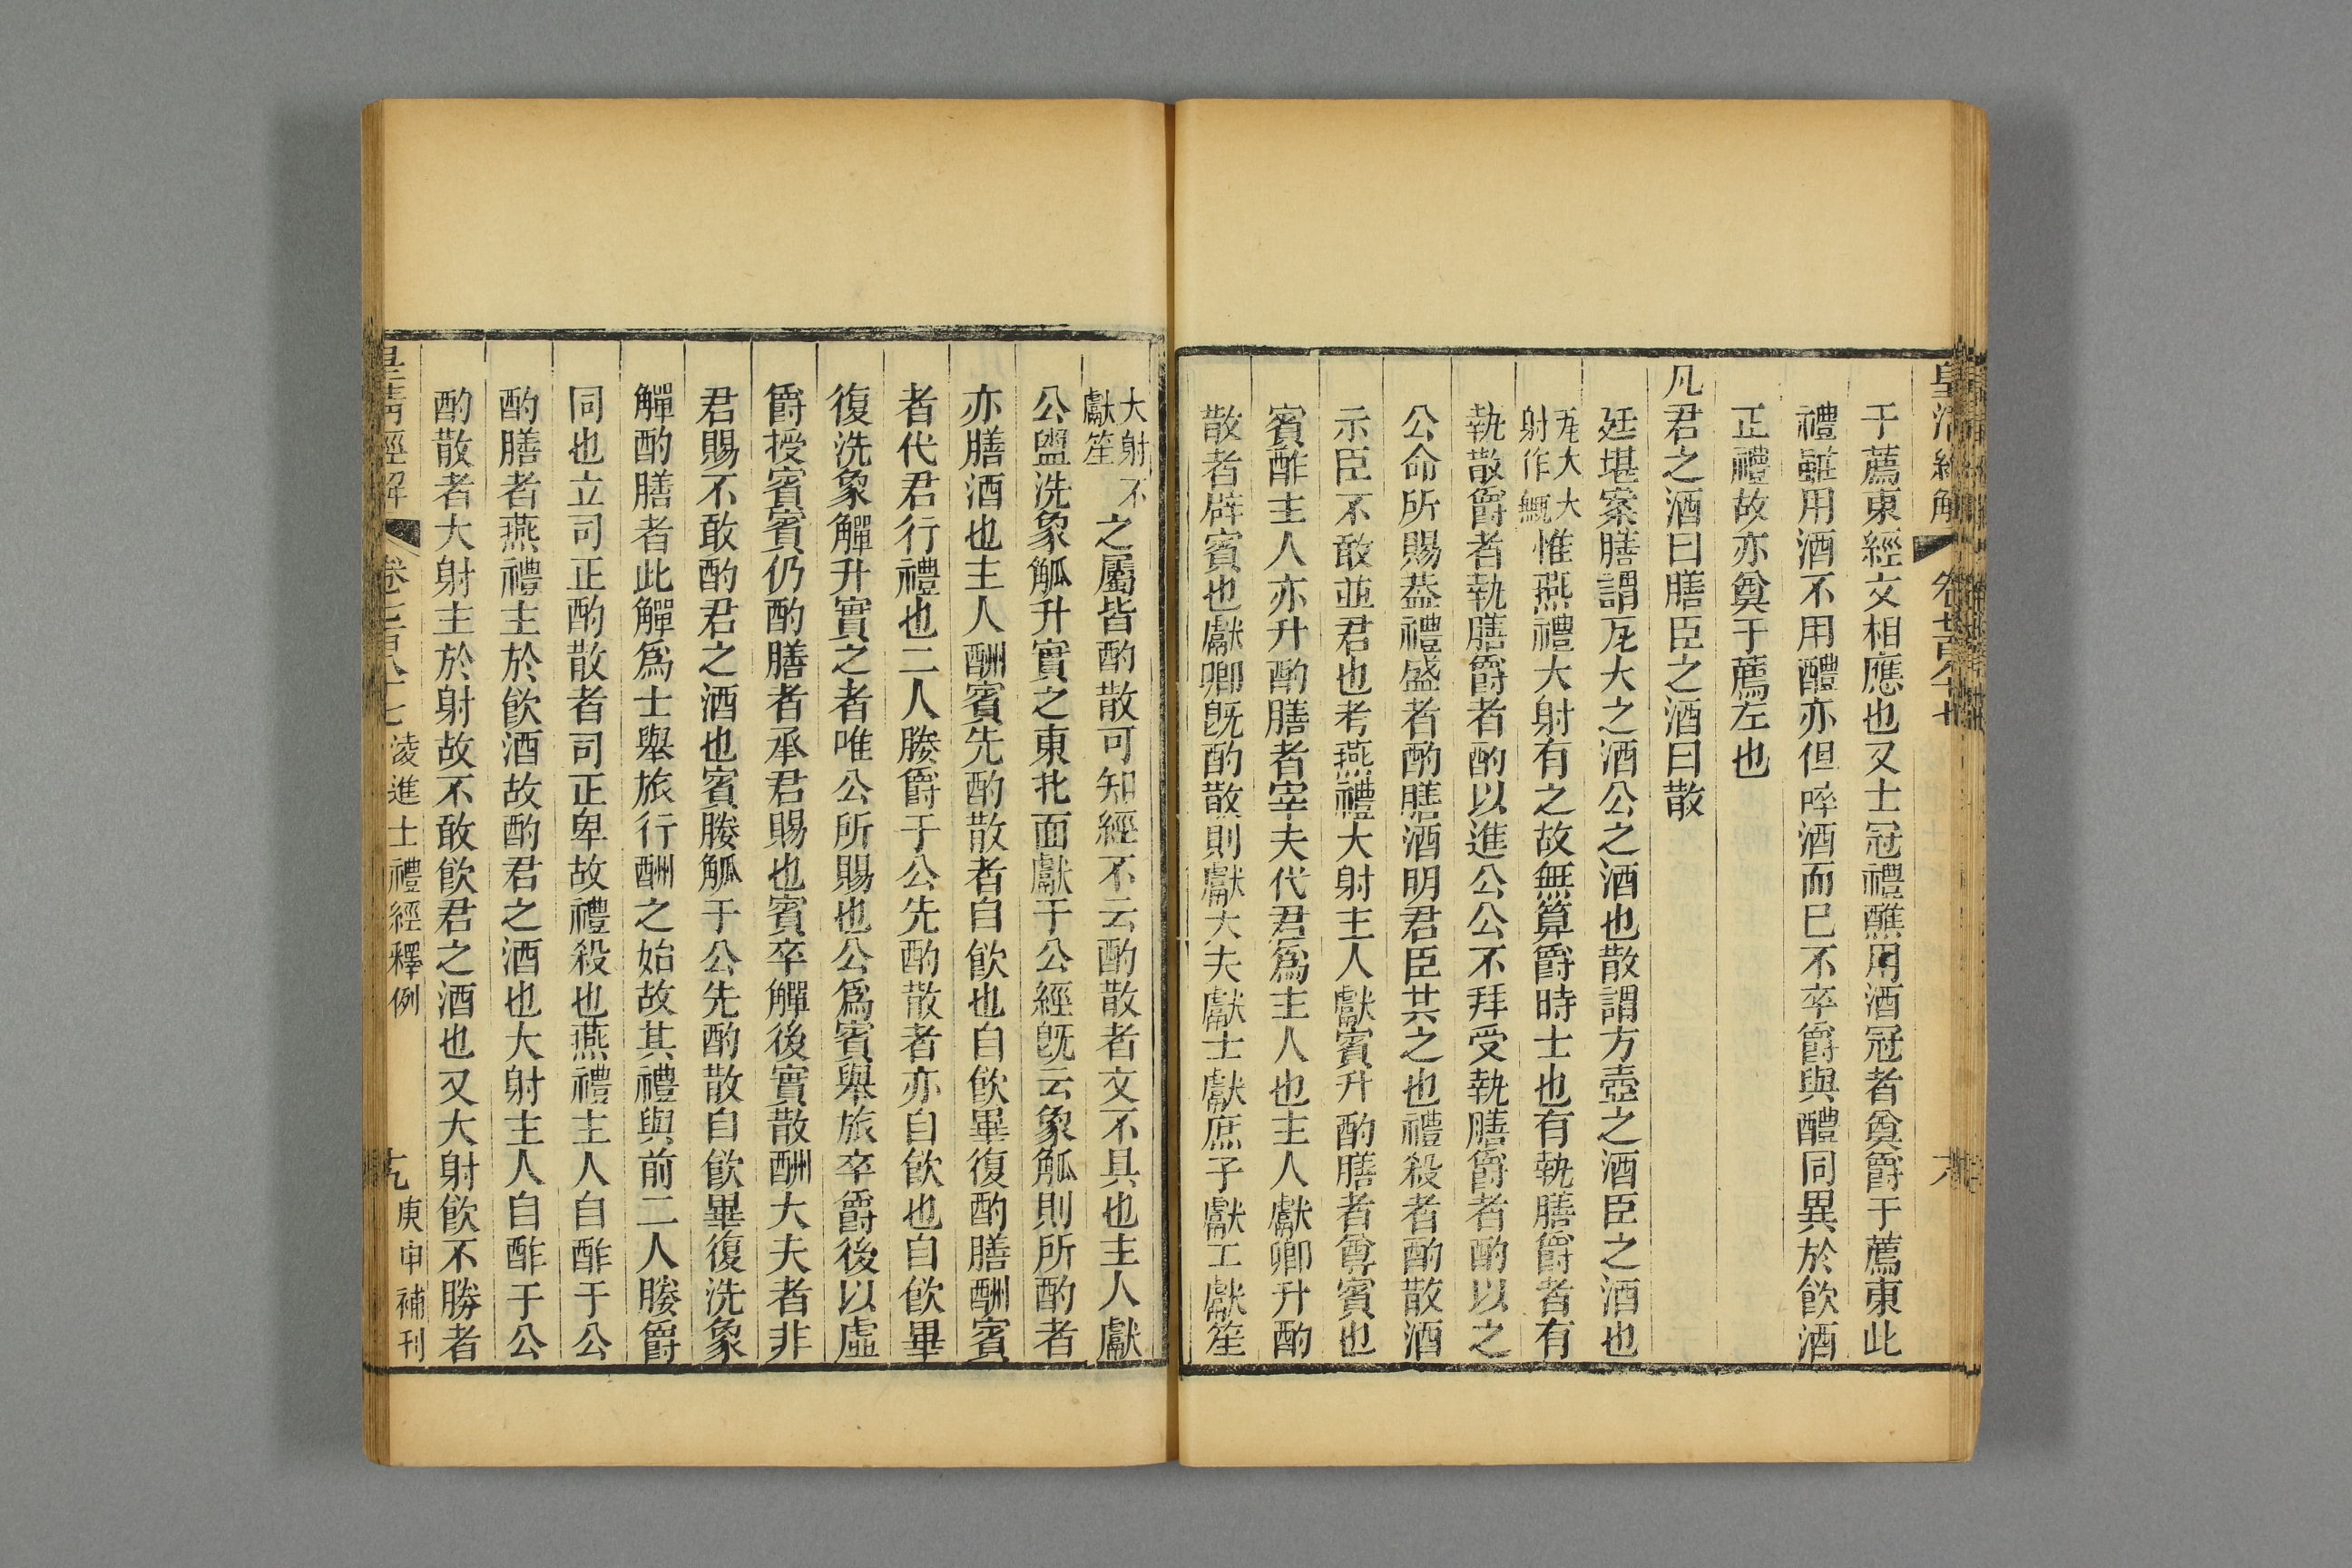 皇清經解
于薦東經文相應也又士冠禮醮用酒冠者奠爵于薦東此
禮雖用酒不用醴亦但啐酒而巳不卒爵與醴同異於飮酒
正禮故亦奠于薦左也
凡君之酒曰膳臣之酒曰散
廷堪案膳謂瓦大之酒公之酒也散謂方壺之酒臣之酒也
瓦大大
射作甒
惟燕禮大射有之故無算爵時士也有執膳爵者有
執散爵者執膳爵者酌以進公公不拜受執膳爵者酌以之
公命所賜葢禮盛者酌膳酒明君臣共之也禮殺者酌散酒
示臣不敢並君也考燕禮大射主人獻賓升酌膳者尊賓也
賓酢主人亦升酌膳者宰夫代君爲主人也主人獻卿升酌
散者辟賓也獻卿旣酌散則獻大夫獻士獻庶子獻工獻笙
大射不
獻笙
之屬皆酌散可知經不云酌散者文不具也主人獻
公盥洗象觚升實之東北面獻于公經旣云象觚則所酌者
亦膳酒也主人酬賓先酌散者自飮也自飮畢復酌膳酬賓
者代君行禮也二人媵爵于公先酌散者亦自飮也自飮畢
復洗象觶升實之者唯公所賜也公爲賓舉旅卒爵後以虛
爵授賓賓仍酌膳者承君賜也賓卒觶後實散酬大夫者非
君賜不敢酌君之酒也賓媵觚于公先酌散自飮畢復洗象
觶酌膳者此觶爲士舉旅行酬之始故其禮與前二人媵爵
同也立司正酌散者司正卑故禮殺也燕禮主人自酢于公
酌膳者燕禮主於飮酒故酌君之酒也大射主人自酢于公
酌散者大射主於射故不敢飮君之酒也又大射飮不勝者
皇清經解
卷七百八十七
淩進士禮經釋例
九
庚申補刊